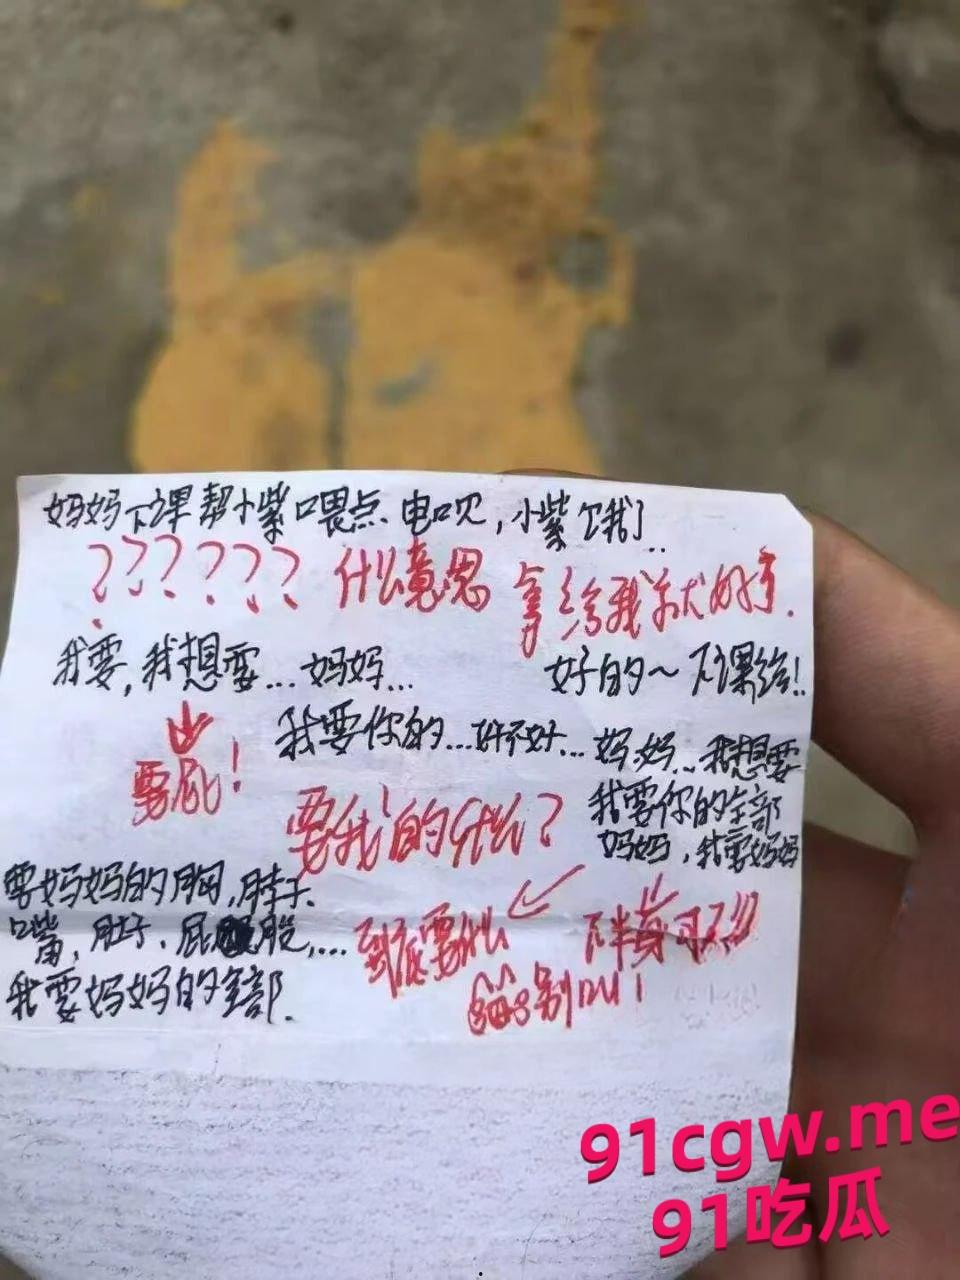 妈妈下课帮小紫喂点电呗，小紫饿了..
？？？？？？ 什么意思 拿给我就好了.
我要，我想要...妈妈... 好的~下课给!!
要屁！ 我要你的...好不好... 妈妈...我想要
要我的什么？ 我要你的全部
妈妈，我要妈妈
要妈妈的胸，脖子.
嘴，肚子.屁股....
我要妈妈的全部.
到底要什么
别
91cgw.me
91吃瓜